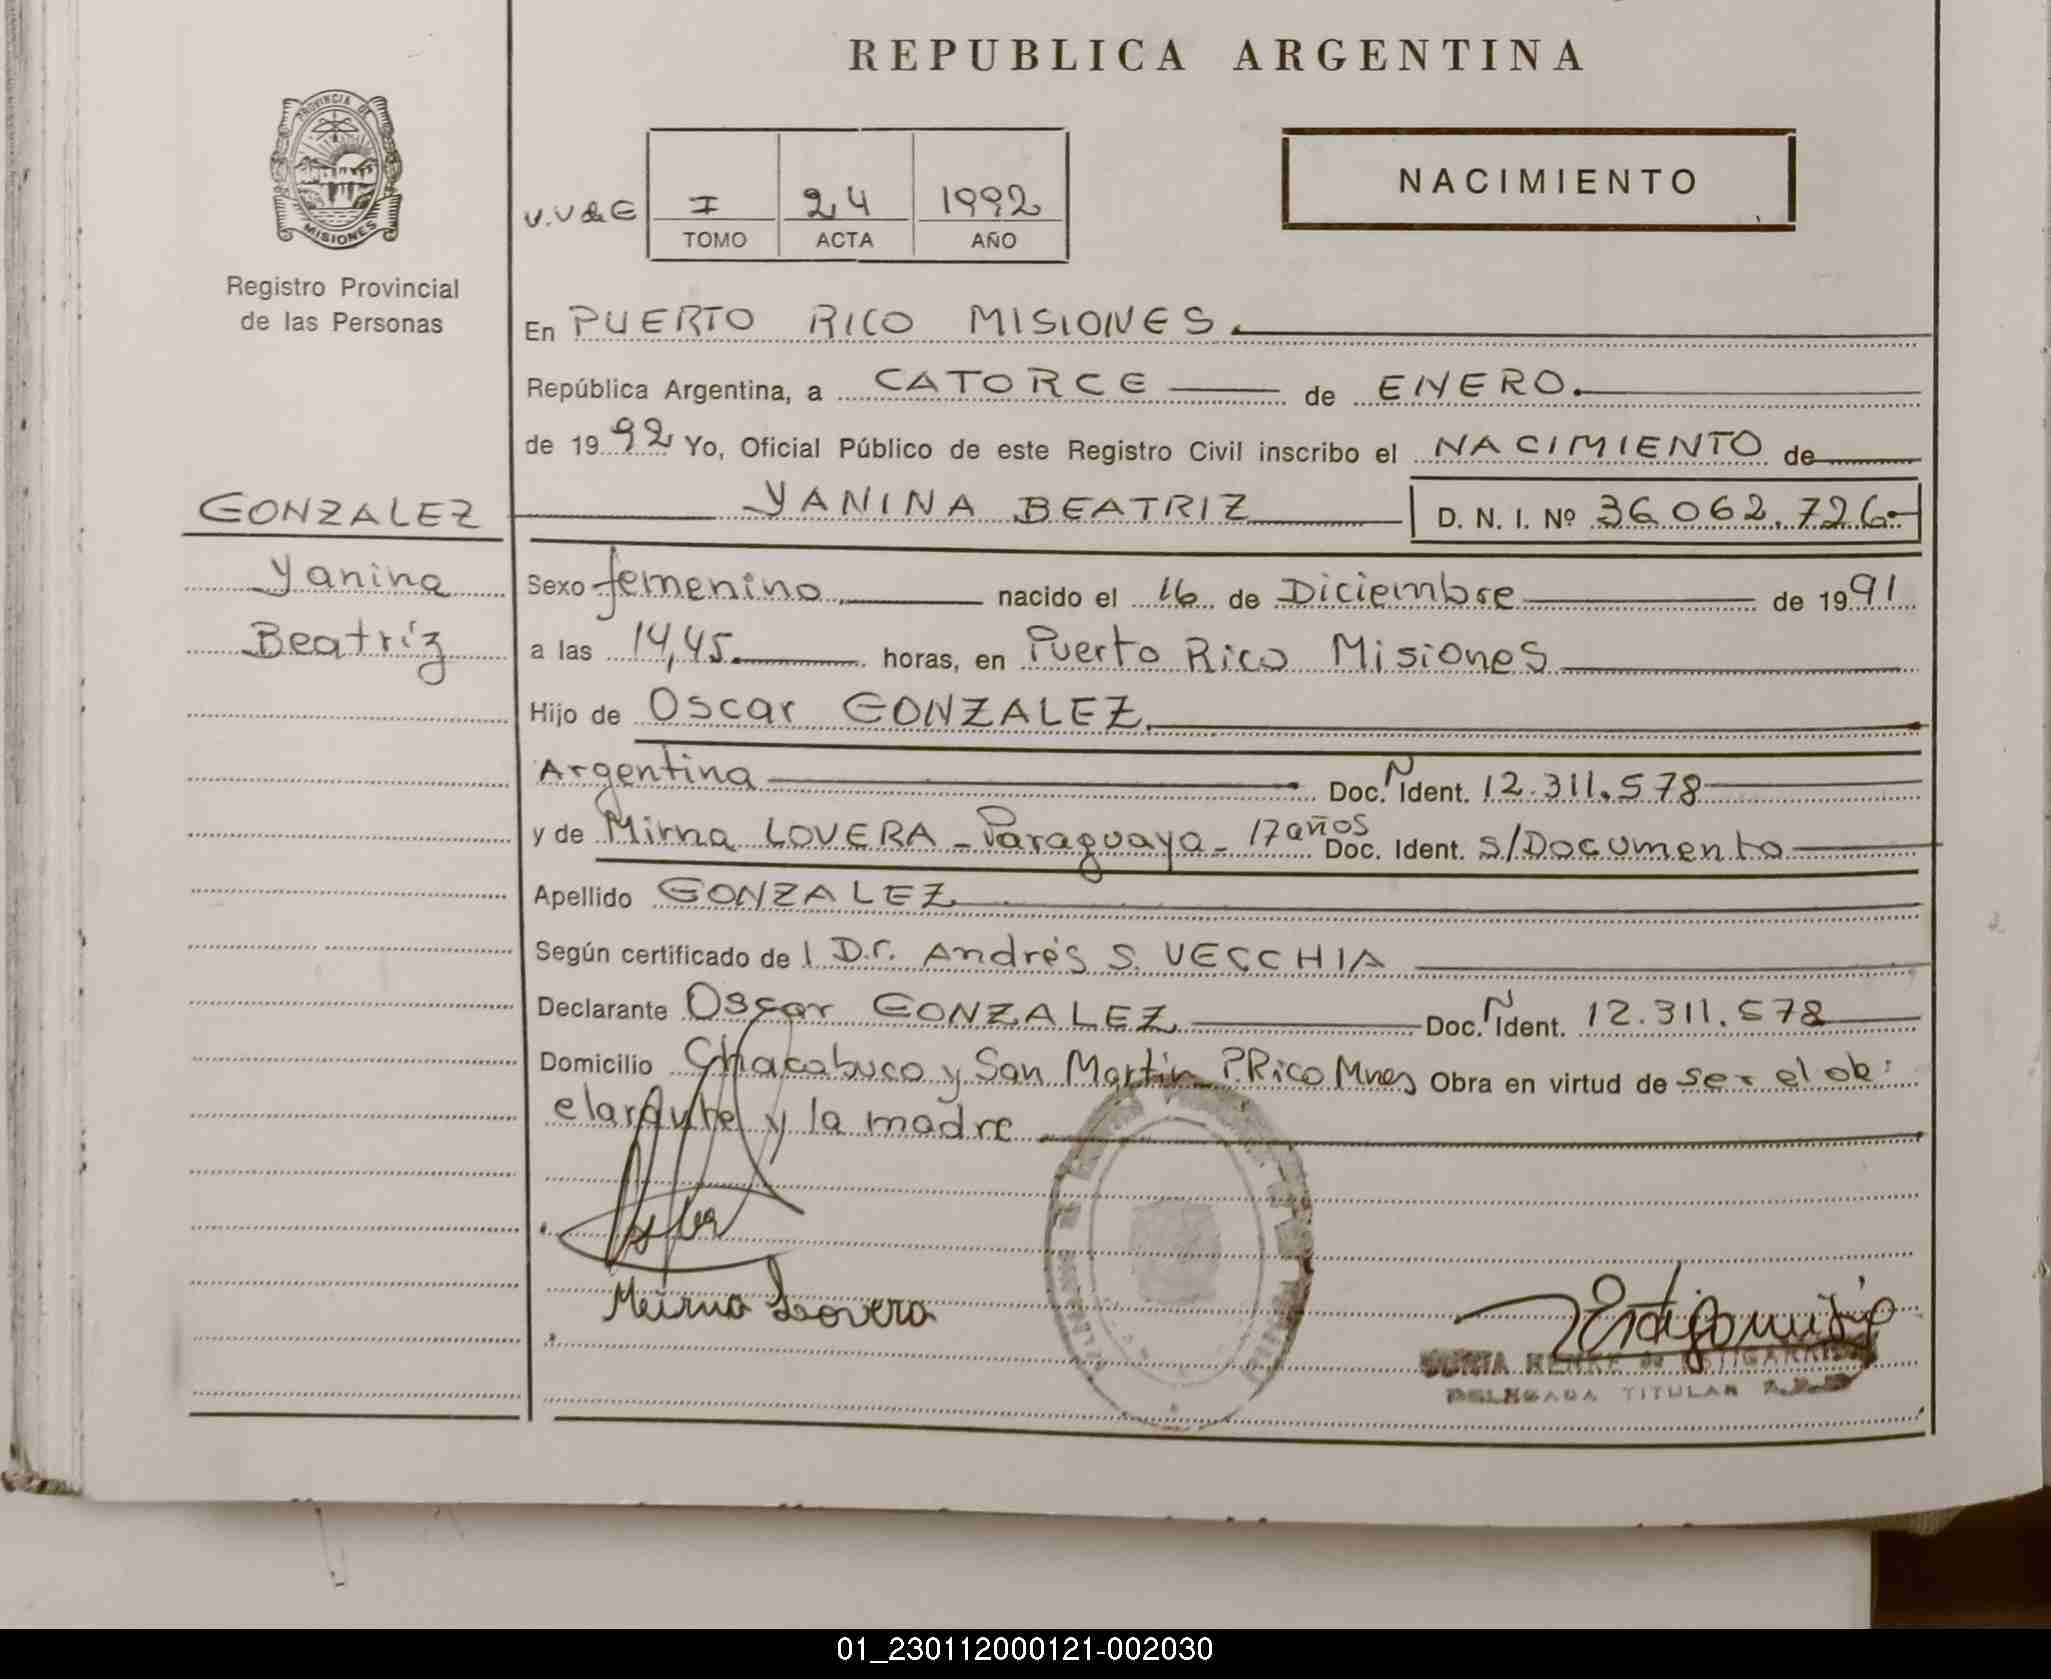 REPUBLICA ARGENTINA
PROVINCIA DE
MISIONES
Registro Provincial
de las Personas
NACIMIENTO
I 24 1992
TOMO ACTA AÑO
En PUERTO RICO MISIONES.
República Argentina, a CATORCE de ENERO.
de 1992 Yo, Oficial Público de este Registro Civil inscribo el NACIMIENTO de
GONZALEZ
YANINA BEATRIZ D. N. I. Nº 36.062.726.-
Yanina
Sexo femenino nacido el 16 de Diciembre de 1991
Beatríz
a las 14,45. horas, en Puerto Rico Misiones
Hijo de Oscar GONZALEZ.
Argentina Doc. Ñ Ident. 12.311.578
y de Mirna LOVERA - Paraguaya - 17 años Doc. Ident. s/Documento
Apellido GONZALEZ
Según certificado de l Dr. Andrés S. VECCHIA
Declarante Oscar GONZALEZ Doc. Ñ Ident. 12.311.578
Domicilio Chacabuco y San Martín P.Rico Mnes Obra en virtud de ser el
y la madre
Mirna Lovera
DELEGADA TITULAR
01_230112000121-002030